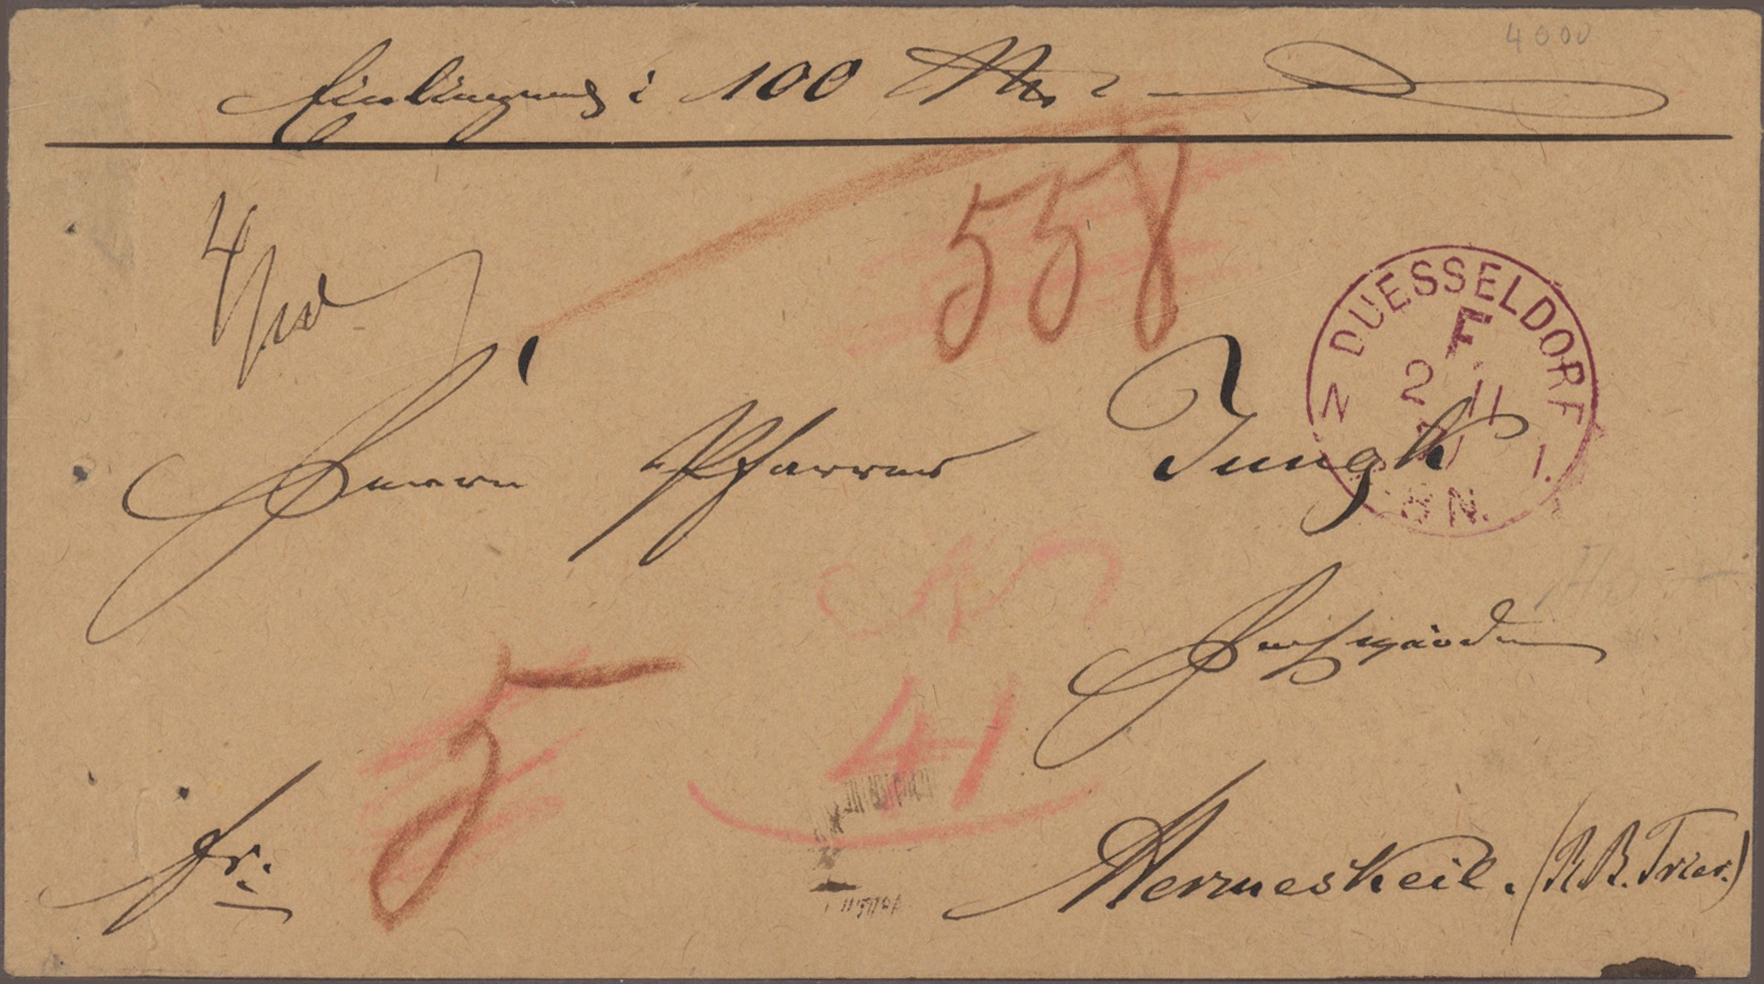 4000
Einliegend: 100 Mk.
558
4
DUESSELDORF
F
2 11
1.
BN.
Herrn Pfarrer Jungk
Hochwürden
5
41
fr.
Hermeskeil. (R. B. Trier.)